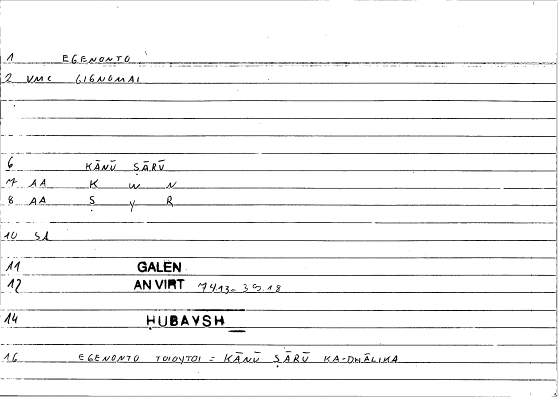 1 EGENONTO
2 VMC GIGNOMAI
6 KĀNŪ ṢĀRŪ
7 AA K W N
8 AA Ṣ Y R
10 SA
11 GALEN
12 AN VIRT 74.13 = 39.18
14 ḤUBAYSH
16 EGENONTO TOIOYTOI = KĀNŪ ṢĀRŪ KA-DHĀLIKA